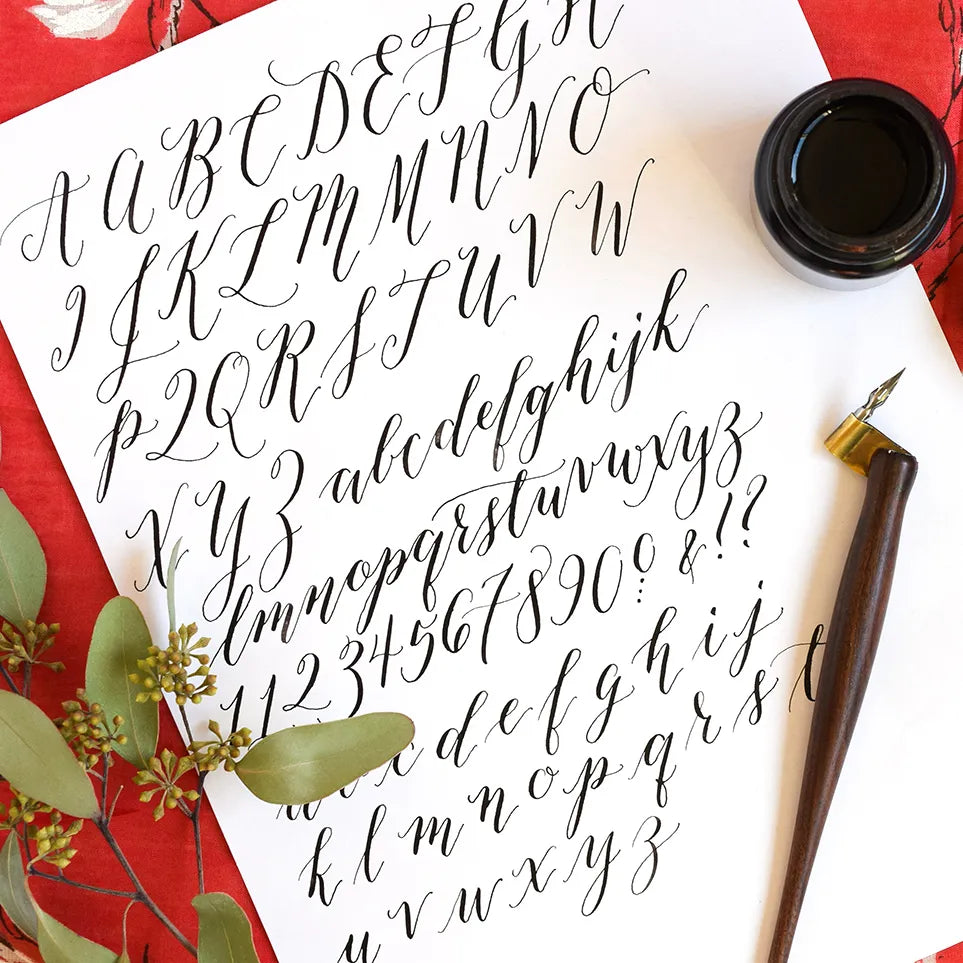 A A B C D E F G H
I J K L M M N N O
P Q Q R S T U V W
X Y Z abcdefghijk
lmnopqrstuvwxyz
11234567890 & ! ?
c d e f g h i j
k l m n o p q r s t
u v w x y z